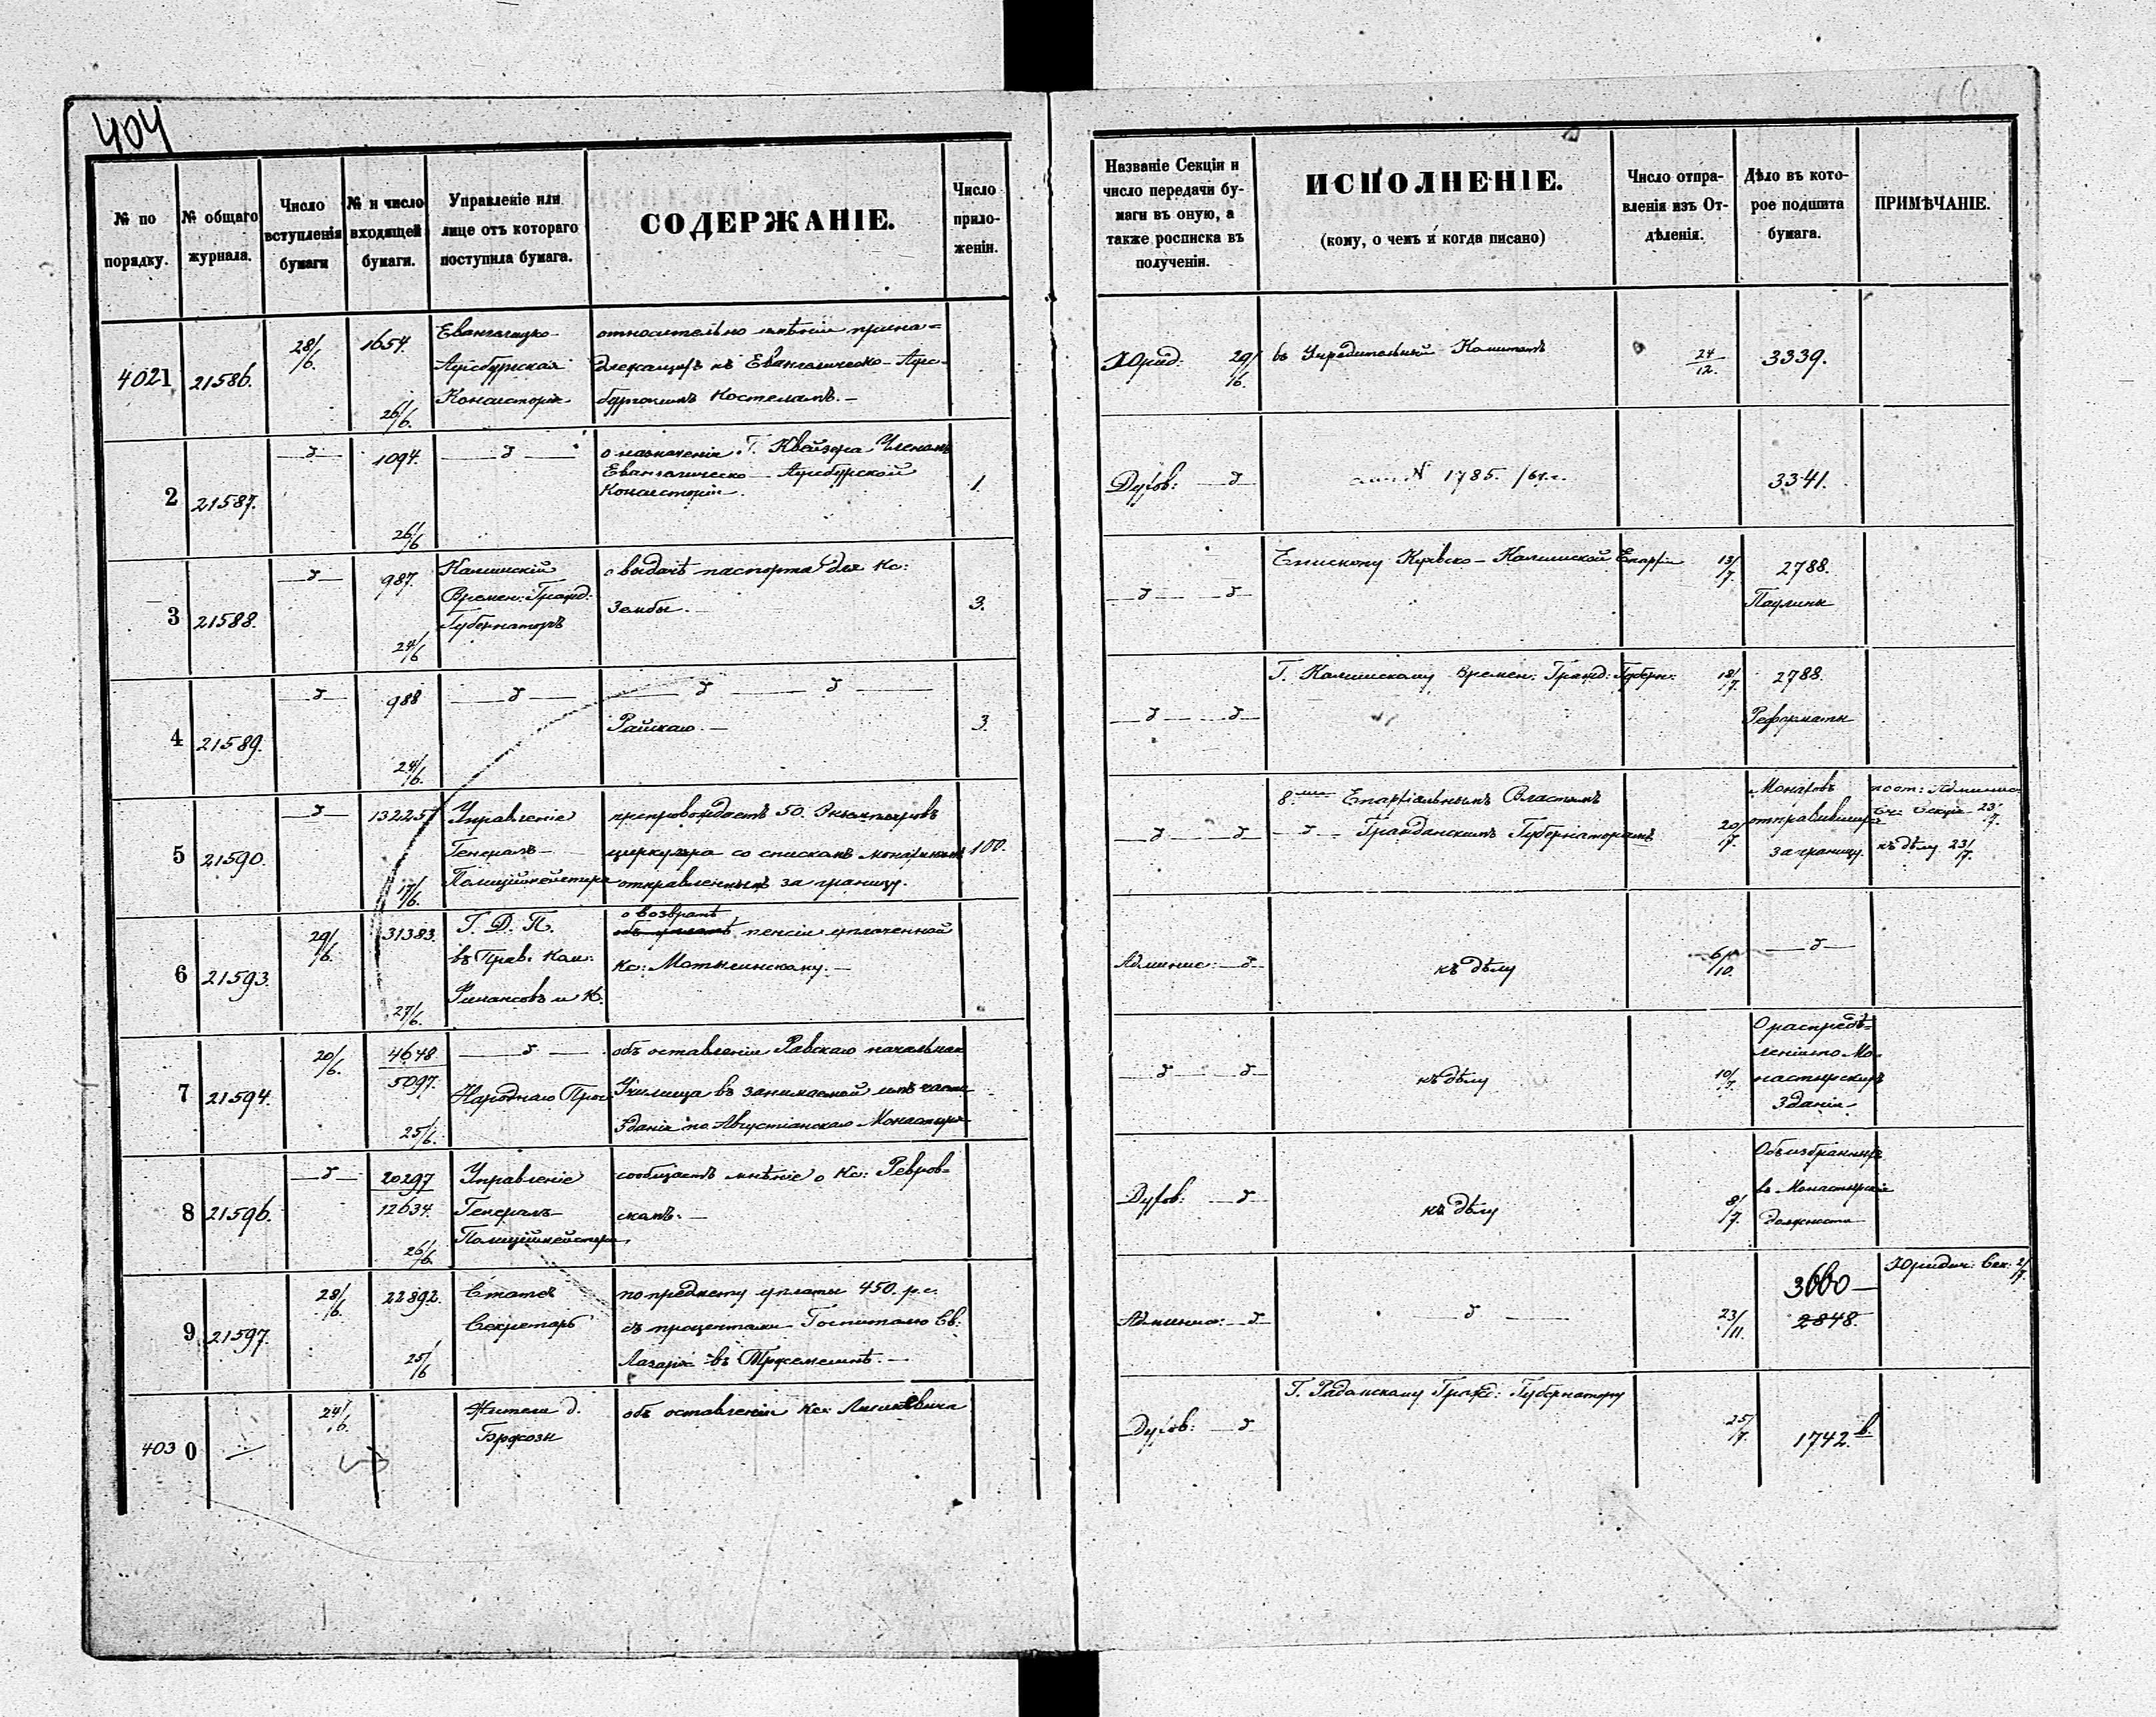 404
№ по порядку.
№ общаго журнала.
Число вступленія бумаги
№ и число входящей бумаги.
Управленіе или лице отъ котораго поступила бумага.
СОДЕРЖАНІЕ.
Число приложеній.
Названіе Секціи и число передачи бумаги въ оную, а также росписка въ полученіи.
ИСПОЛНЕНІЕ.
(кому, о чемъ и когда писано)
Число отправленія изъ Отдѣленія.
Дѣло въ которое подшита бумага.
ПРИМѢЧАНІЕ.
4021 21586. 28/6. 1654. 26/6.
Евангелицко-
Аугсбургская
Консисторія
относительно имѣнія принад=
длежащихъ къ Евангелическо-Аугс-
бургскимъ Костеламъ.—
Юрид: 29/16. въ Учредительный Комитетъ 24/12. 3339.
2 21587. 1094. 26/6
о назначеніи Г. Квейзера Членомъ
Евангелическо-Аугсбургской
Консисторіи.
1.
Духов: № 1785. /64. 3341.
3 21588. 987. 24/6
Калишскій
Времен: Гражд:
Губернаторъ
о выдачѣ паспорта для Кс:
Зембы.—
3.
Епископу Куявско-Калишской Епархіи 13/7. 2788.
Паулины
4 21589. 988 24/6.
Райскаго.—
3.
Г. Калишскому Времен: Гражд: Губерн: 18/7. 2788.
Реформаты
5 21590. 132257 17/6.
Управленіе
Генералъ-
Полиціймейстера
препровождаетъ 50. Экземпляровъ
циркуляра со спискомъ монахинямъ
отправленнымъ за границу.
100.
8. Епархіальнымъ Властямъ
Гражданскимъ Губернаторамъ 20/7.
Монаховъ
отправившихся
за границу.
пост: Админис
Секція 23/7.
къ дѣлу 23/7.
6 21593. 29/6. 31383. 27/6.
Г. Д. П.
въ Прав. Ком:
Финансовъ и К.
о возвратѣ
объ уплатѣ пенсіи уплаченной
Кс: Мотылинскому.—
Админис: къ дѣлу 6/10.
7 21594. 20/6. 4648 5097. 25/6.
Народнаго Прос:
объ оставленіи Равскаго начальнаго
Училища въ занимаемой имъ части
Зданія по Августіанскаго Монастыря
къ дѣлу 10/7.
О распредѣ=
леніи по Мо-
настырскихъ
Зданіи
8 21596. 20297 12634. 26/6.
Управленіе
Генералъ-
Полиціймейстера,
сообщаетъ мнѣніе о Кс: Ревров=
скомъ.—
Духов: къ дѣлу 8/7.
Объ избранныхъ
въ Монастырскіе
должности
9 21597. 28/6. 22892. 25/6
Статсъ
Секретарь
по предмету уплаты 450. р.с.
съ процентами Госпиталю Св:
Лазаря въ Тржемешнѣ.—
Админис: 23/11. 3660 —
2848.
Юридич: Сек: 2/7.
4030 24/6.
Жители д.
Бржозы
объ оставленіи Кс: Лисикевича
Духов: Г. Радомскому Гражд: Губернатору 25/7. 1742. в.